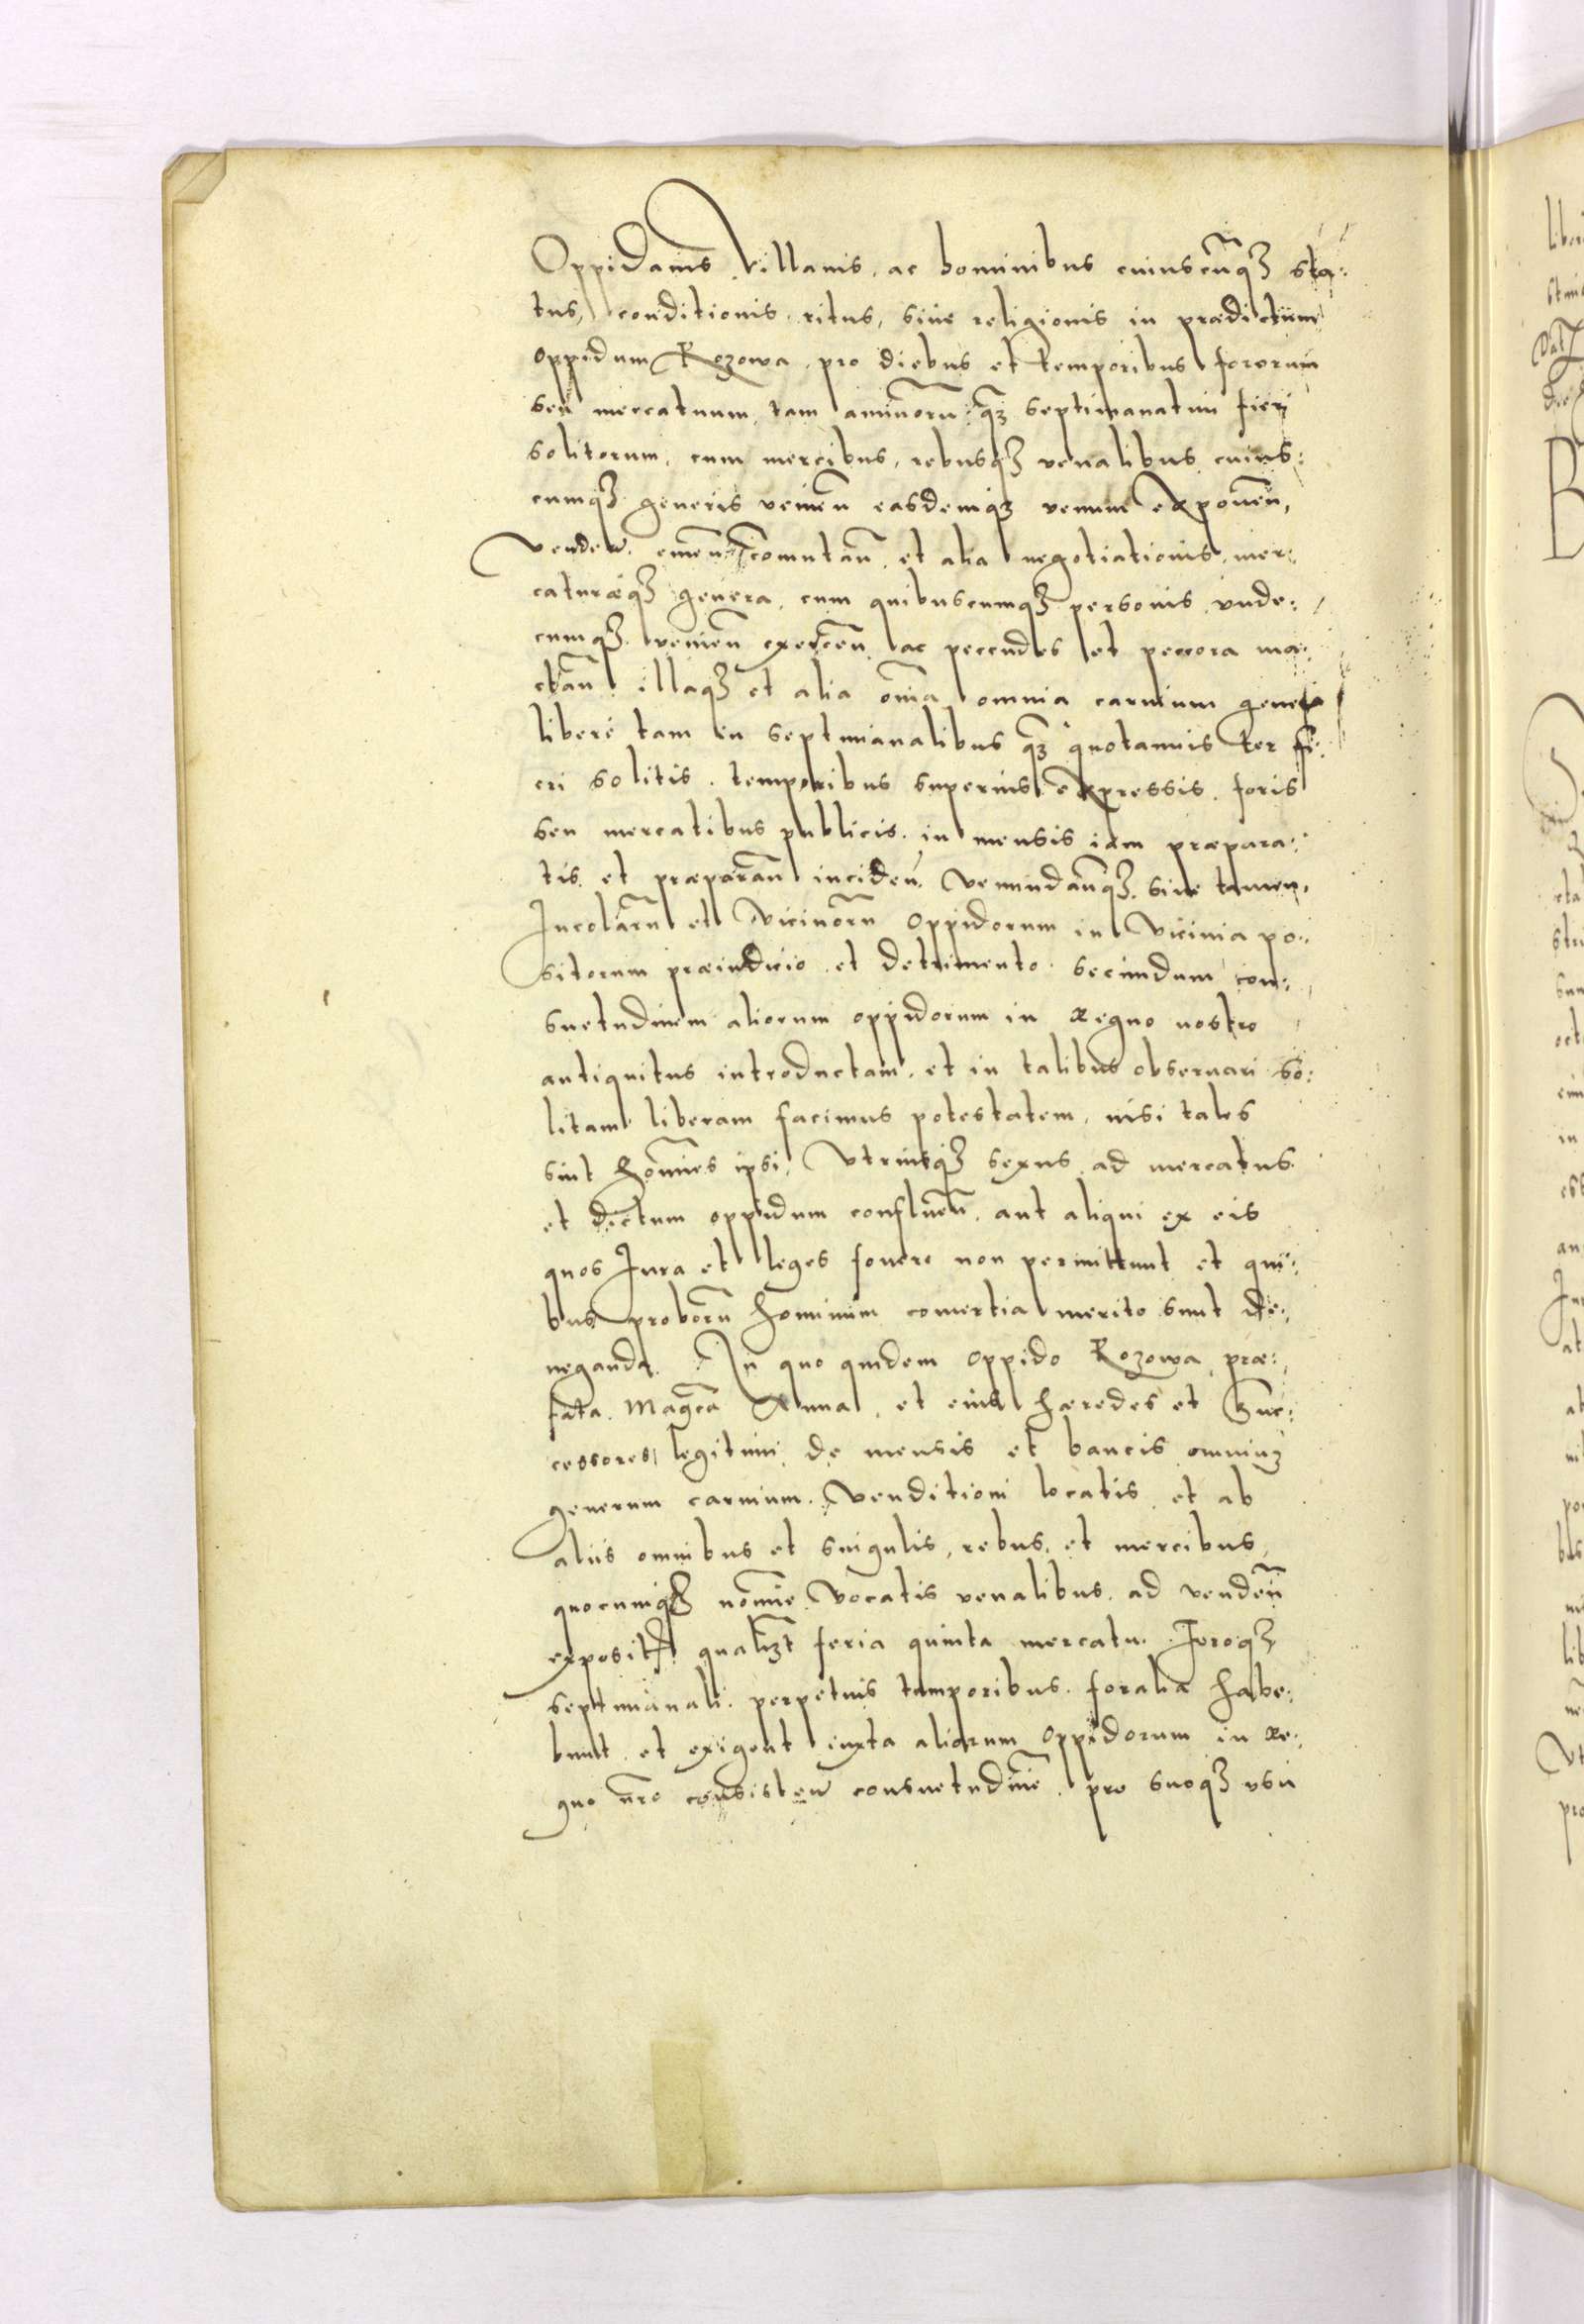 Oppidanis Villanis, ac hominibus cuiuscũq3 sta:
tus, conditionis, ritus, siue religionis in prædictum
oppidum Kozowa, pro diebus et temporibus fororum
seu mercatuum, tam annuorũ q̃3 septimanatim fieri
solitorum, cum mercibus, rebusq3 venalibus cuius:
cumq3 generis venieñ easdemq3 venum exponeñ,
Venden. emeñ com̃utañ et alia negotiationis, mer:
caturæq3 genera, cum quibuscumq3 personis vnde:
cumq3 venieñ exerceñ ac peccudes et peccora ma:
ctañ illaq3 et alia om̃ia omnia carnium genera
liberè tam in septimanalibus q̃3 quotannis ter fi:
eri solitis, temporibus superius expressis, foris
seu mercatibus publicis, in mensis iam præpara:
tis et præparañ incideñ. Venundañq3. sine tamen,
Incolarũ et vicinorũ oppidorum in Vicinia po:
sitorum præiudicio et detrimento. secundum con:
suetudinem aliorum oppidorum in Regno nostro
antiquitus introductam, et in talibus obseruari so:
litam liberam facimus potestatem, nisi tales
sint hom̃ines ipsi, Vtriusq3 sexus ad mercatus
et dictum oppidum conflueñ. aut aliqui ex eis
quos Jura et leges fouere non permittunt et qui:
bus proborũ hominum comertia merito sunt de:
neganda. In quo quidem oppido Kozowa præ:
fata Mag̃ca Anna, et eius hæredes et Suc:
cessores legitimi de mensis et bancis omniu3
generum carnium. Venditioni locatis et ab
aliis omnibus et singulis, rebus, et mercibus,
quocumq3 nom̃ine Vocatis venalibus, ad vendeñ
exposit. qual3t feria quinta mercatu. Foroq3
septimanali. perpetuis temporibus. foralia habe:
bunt et exigent iuxta aliorum oppidorum in Re:
gno ñro consisten consuetudinẽ. pro suoq3 vsu